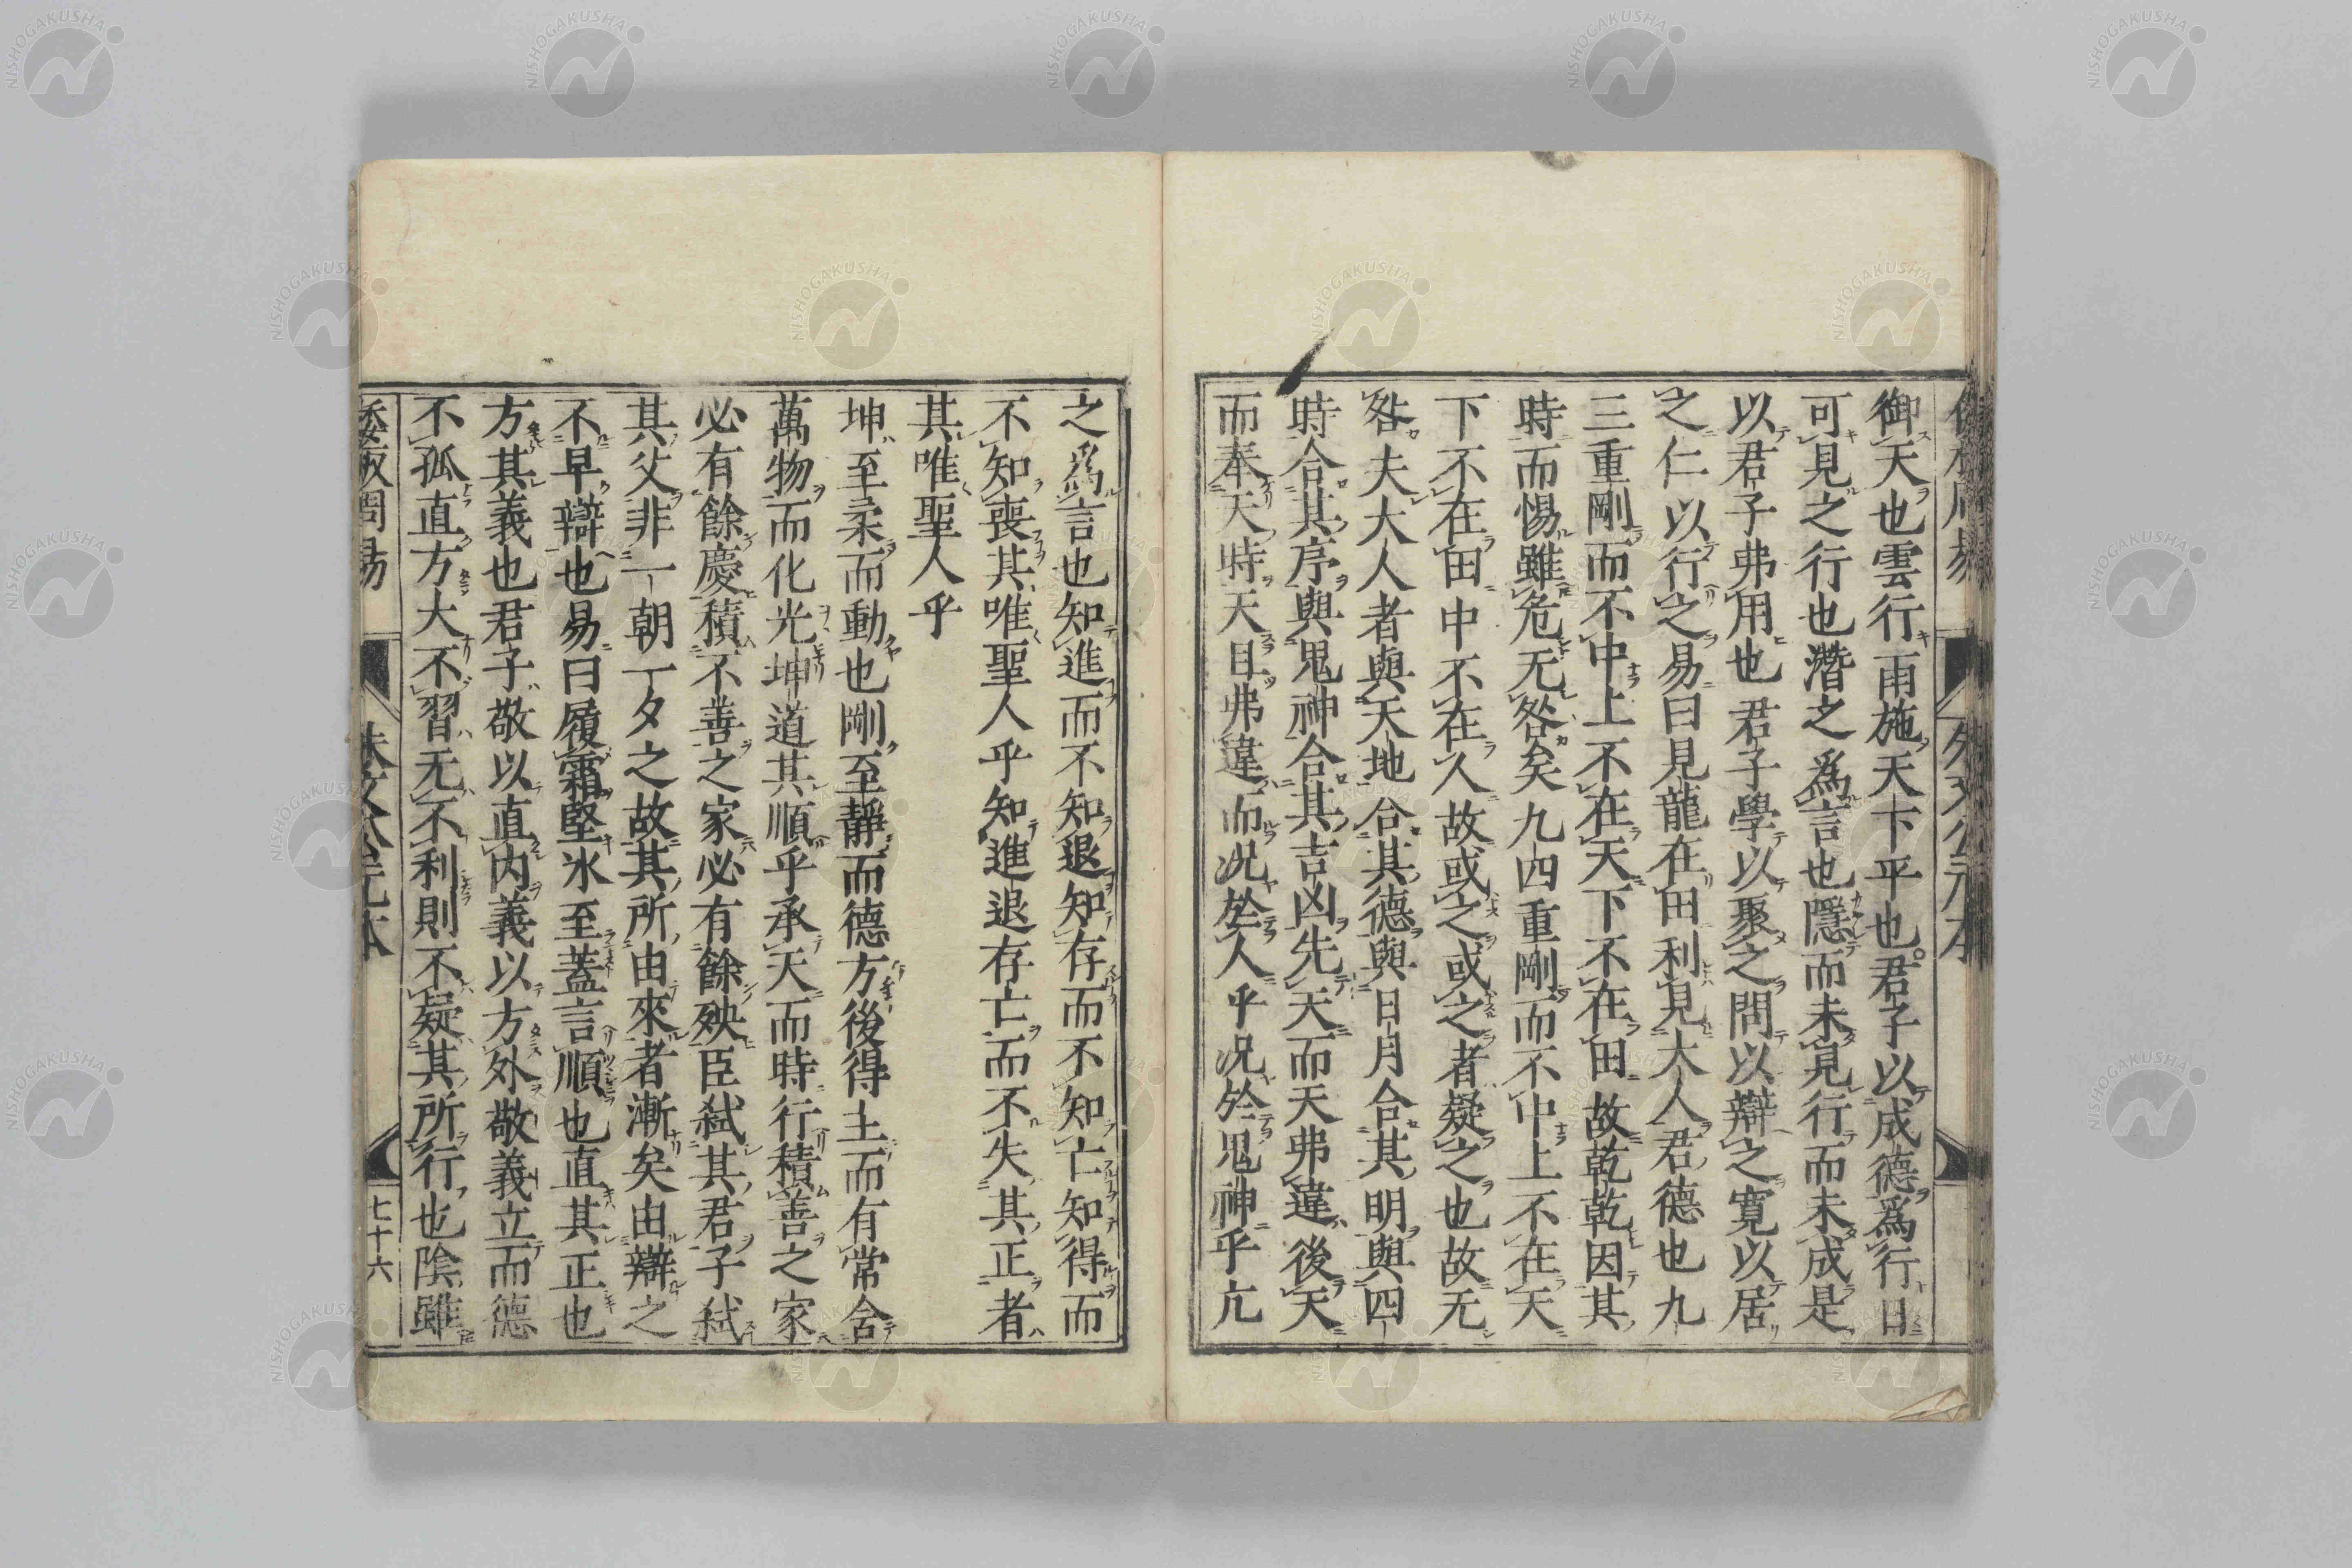 御天也雲行雨施天下平也君子以成德爲行日
可見之行也潛之爲言也隱而未見行而未成是
以君子弗用也君子學以聚之問以辯之寬以居
之仁以行之易曰見龍在田利見大人君德也九
三重剛而不中上不在天下不在田故乾乾因其
時而惕雖危无咎矣九四重剛而不中上不在天
下不在田中不在人故或之或之者疑之也故无
咎夫大人者與天地合其德與日月合其明與四
時合其序與鬼神合其吉凶先天而天弗違後天
而奉天時天且弗違而況於人乎況於鬼神乎亢
之爲言也知進而不知退知存而不知亡知得而
不知喪其唯聖人乎知進退存亡而不失其正者
其唯聖人乎
坤至柔而動也剛至靜而德方後得主而有常含
萬物而化光坤道其順乎承天而時行積善之家
必有餘慶積不善之家必有餘殃臣弑其君子弑
其父非一朝一夕之故其所由來者漸矣由辯之
不早辯也易曰履霜堅氷至蓋言順也直其正也
方其義也君子敬以直内義以方外敬義立而德
不孤直方大不習无不利則不疑其所行也陰雖
倭板周易 朱文公正本 七十六
NISHOGAKUSHA